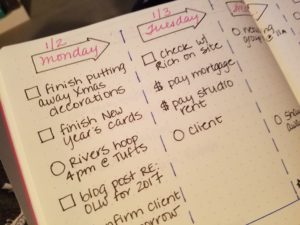 1/2
monday
finish putting
away Xmas
decorations
finish New
year's cards
Rivers hoop
4pm @ Tufts
blog post RE:
OLW for 2017
nfirm Client
orrow
1/3
Tuesday
check w/
Rich on site
$ pay mortgage
$ pay studio
rent
client